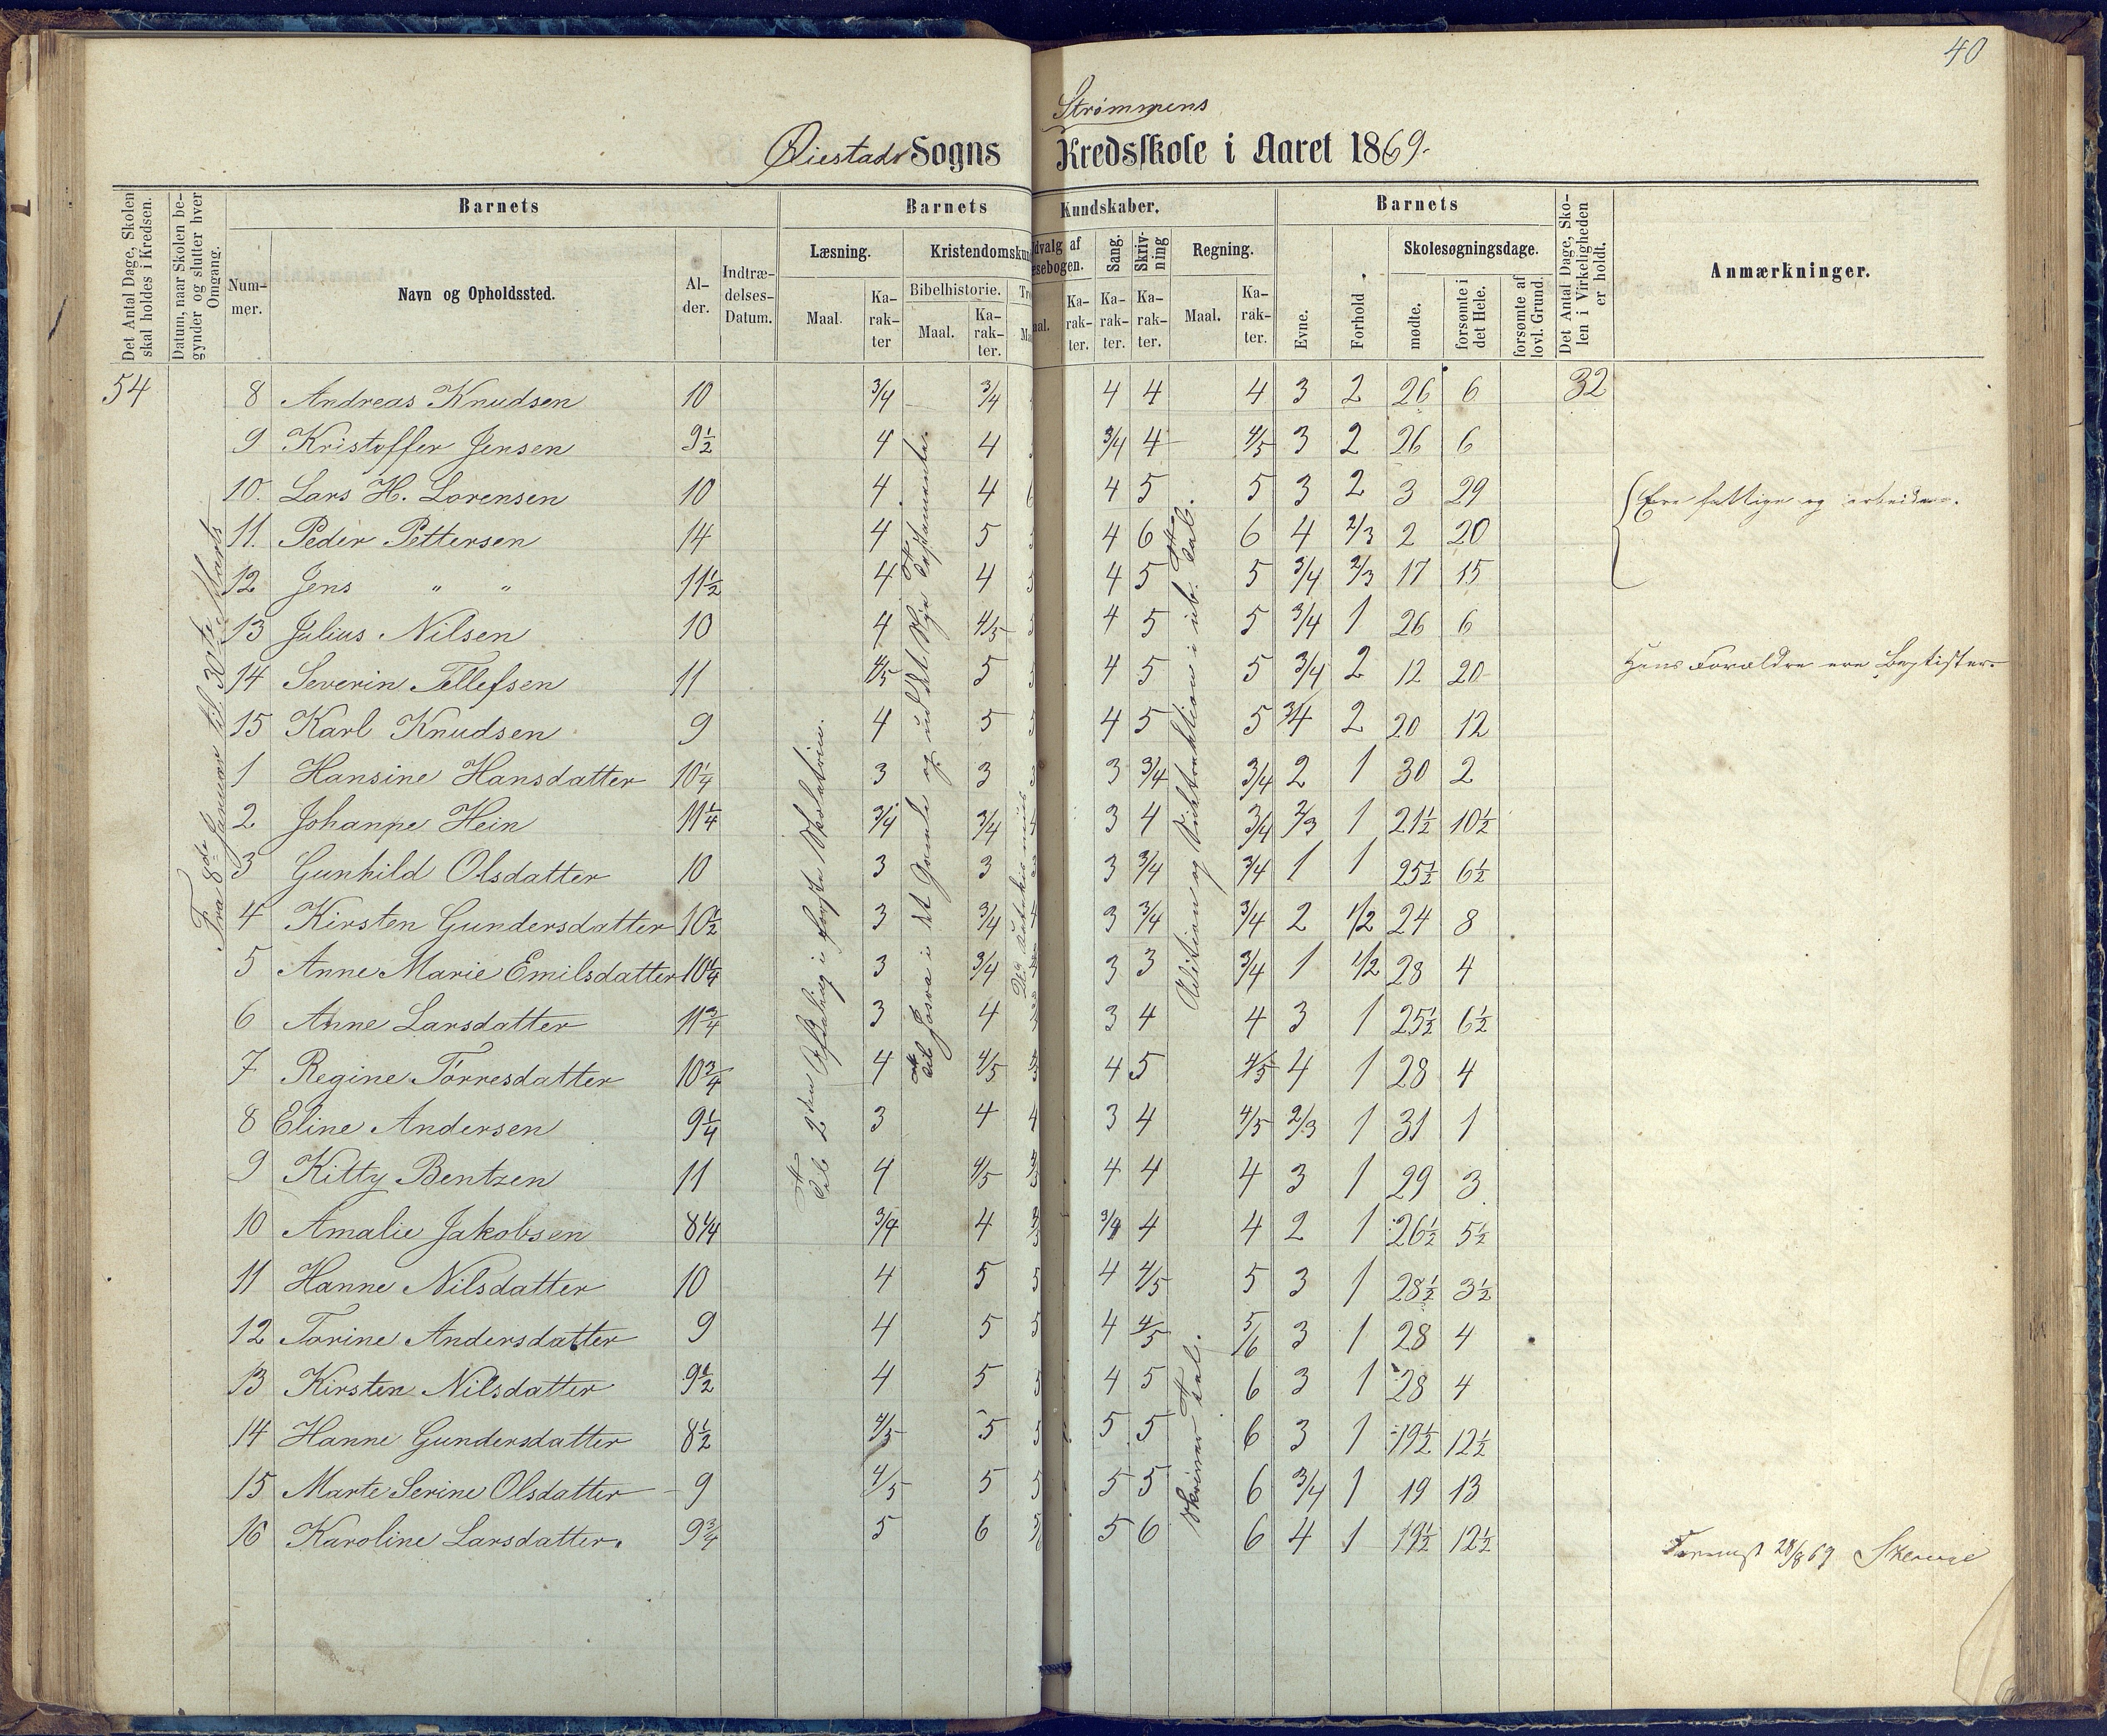 40
Strømmens
Øiestads Sogns Kredsskole i Aaret 1869.
Det Antal Dage, Skolen skal holdes i Kredsen.
Datum, naar Skolen begynder og slutter hver Omgang.
Barnets
Nummer.
Navn og Opholdssted.
Alder.
Indtrædelses-Datum.
Barnets Kundskaber.
Læsning.
Maal.
Karakter
Kristendomskun
Bibelhistorie.
Maal.
Karakter.
Tro
Ma
dvalg af
æsebogen.
aal.
Karakter.
Sang.
Karakter.
Skrivning
Karakter.
Regning.
Maal.
Karakter.
Barnets
Evne.
Forhold.
Skolesøgningsdage.
mødte.
forsømte i det Hele.
forsømte af lovl. Grund.
Det Antal Dage, Skolen i Virkeligheden er holdt.
Anmærkninger.
54 8 Andreas Knudsen 10 3/4 3/4 4 4 4 3 2 26 6 32
9 Kristoffer Jensen 9½ 4 4 3/4 4 4/5 3 2 26 6
10. Lars H. Lorensen 10 4 4 4 5 5 3 2 3 29 Ere fattige og
11. Peder Pettersen 14 4 5 4 6 6 4 2/3 2 20
12 Jens " " 11½ 4 4 4 5 5 3/4 2/3 17 15
13 Julius Nilsen 10 4 4/5 4 5 5 3/4 1 26 6
14 Severin Tellefsen 11 4/5 5 4 5 5 3/4 2 12 20 Hans Forældre ere Baptister
15 Karl Knudsen 9 4 5 4 5 5 3/4 2 20 12
1 Hansine Hansdatter 10¼ 3 3 3 3/4 3/4 2 1 30 2
2 Johanne Hein 11¼ 3/4 3/4 3 4 3/4 2/3 1 21½ 10½
3 Gunhild Olsdatter 10 3 3 3 3/4 3/4 1 1 25½ 6½
4 Kirsten Gundersdatter 10½ 3 3/4 3 3/4 3/4 2 1/2 24 8
5 Anne Marie Emilsdatter 10¼ 3 3/4 3 3 3/4 1 1/2 28 4
6 Anne Larsdatter 11¾ 3 4 3 4 4 3 1 25½ 6½
7 Regine Torresdatter 10¾ 4 4/5 4 5 4/5 4 1 28 4
8 Eline Andersen 9¼ 3 4 4 3 4 4/5 2/3 1 31 1
9 Kitty Bentzen 11 4 4/5 4 4 4 3 1 29 3
10 Amalie Jakobsen 8¼ 3/4 4 3/4 4 4 2 1 26½ 5½
11 Hanne Nilsdatter 10 4 5 5 4 4/5 5 3 1 28½ 3½
12 Torine Andersdatter 9 4 5 5 4 4/5 5/6 3 1 28 4
13 Kirsten Nilsdatter 9½ 4 5 5 4 5 6 3 1 28 4
14 Hanne Gundersdatter 8½ 4/5 5 5 5 5 6 3 1 19½ 12½
15 Marte Serine Olsdatter 9 4/5 5 5 5 5 6 3/4 1 19 13
16 Karoline Larsdatter. 9¾ 5 6 5 6 6 4 1 19½ 12½
Fra 8de Januar til 30te Marts
2den Afdeling i første
Josva i det Gamle og ud det Nye Testamente.
Addition og Subtraktion i ub. Tal.
Skriver Tal.
28/8 69